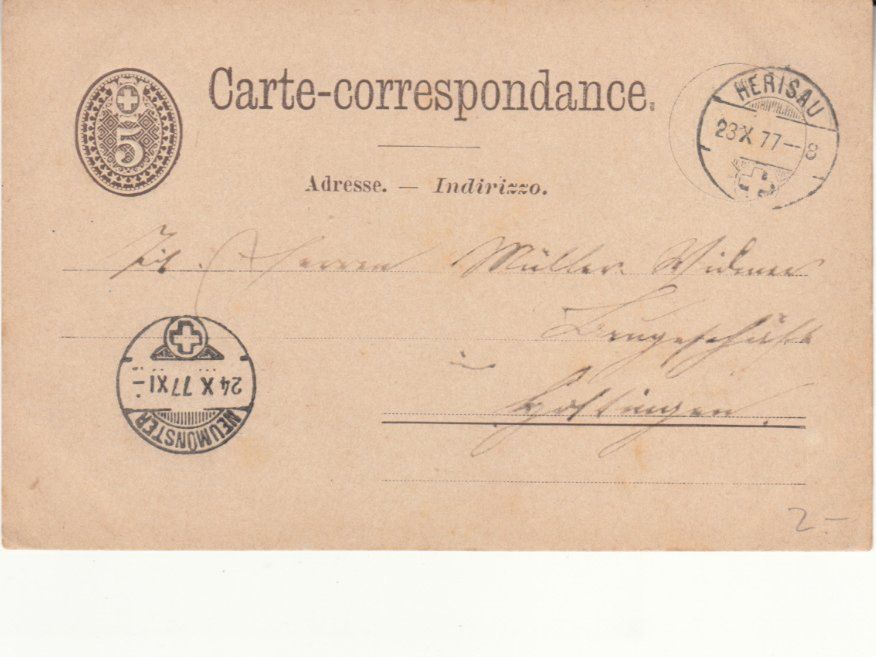 5
Carte-correspondance.
HERISAU
23 X 77 — 8
Adresse. — Indirizzo.
Tit. Herren Müller Widmer
Baugeschäft
in
Hottingen
24 X 77 XI —
NEUMÜNSTER
2-